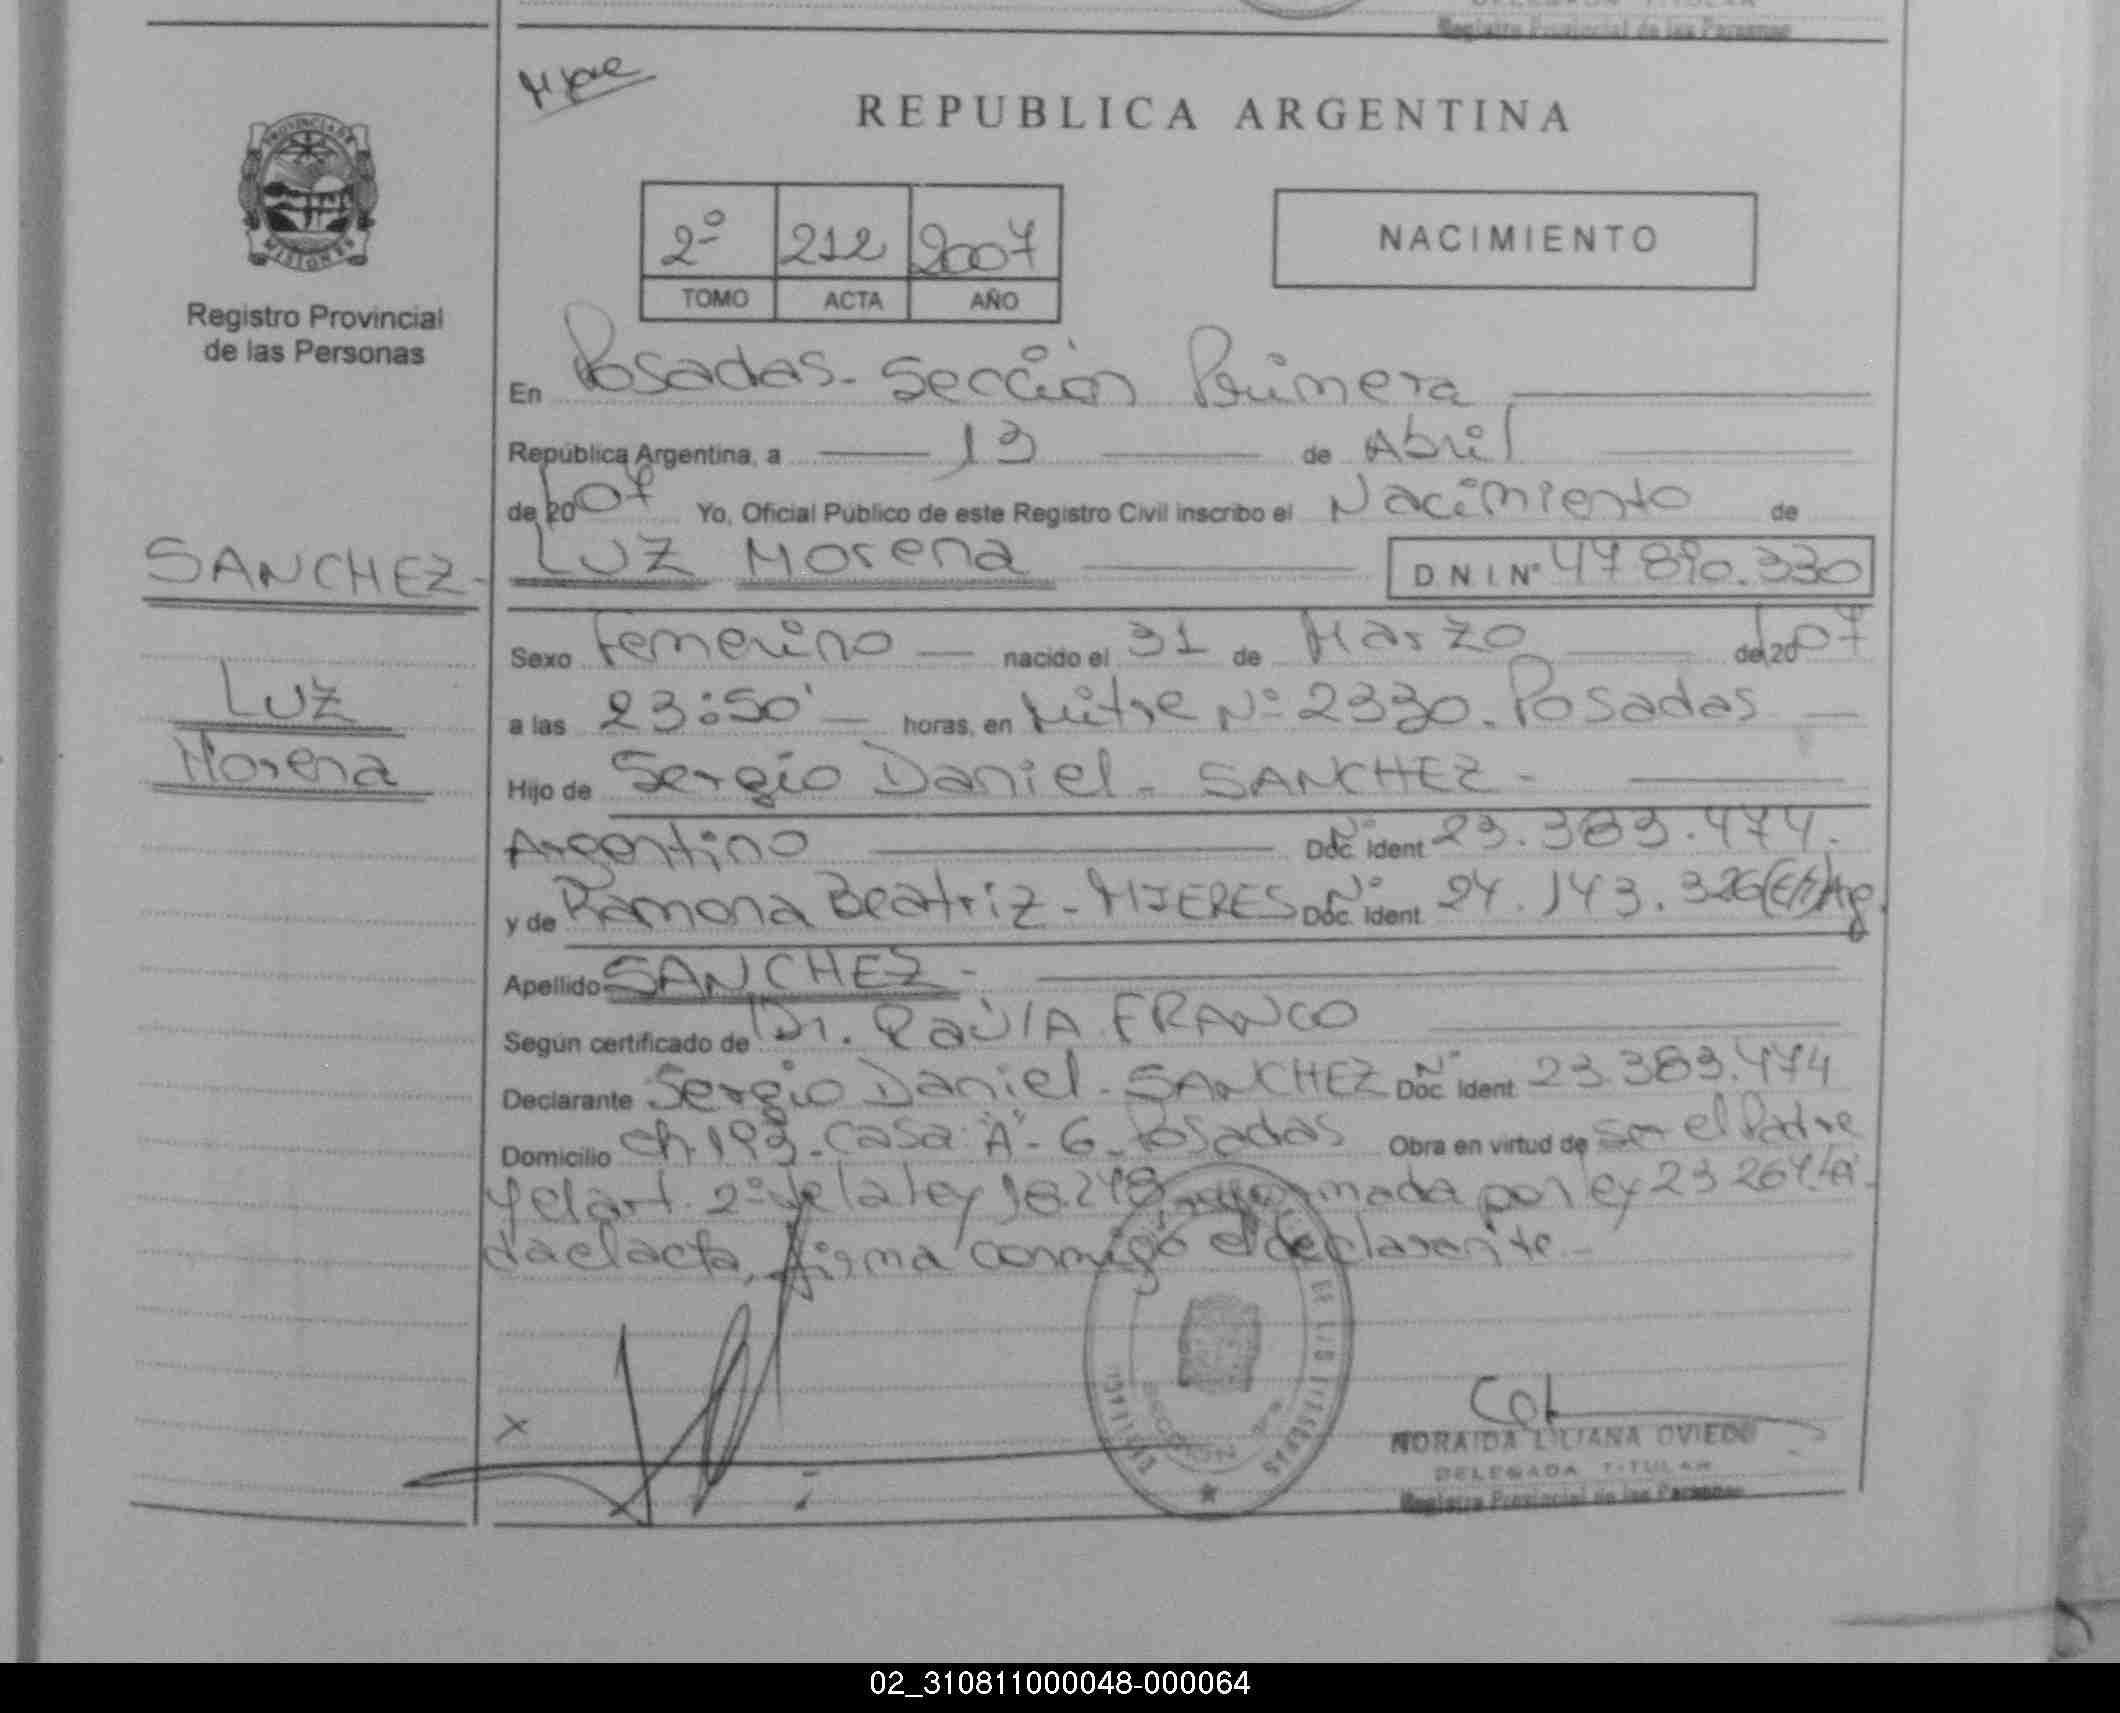 Registro Provincial de las Personas
REPUBLICA ARGENTINA
PROVINCIA DE
MISIONES
Registro Provincial
de las Personas
2º 212 2007
TOMO ACTA AÑO
NACIMIENTO
En Posadas - Sección Primera
República Argentina, a 13 de Abril
de 2007 Yo, Oficial Público de este Registro Civil inscribo el Nacimiento de
SANCHEZ-
LUZ Morena DNI Nº 47 890.330
Sexo Femenino nacido el 31 de Marzo de 2007
LUZ
a las 23:50' horas, en Mitre Nº 2330. Posadas
Morena
Hijo de Sergio Daniel - SANCHEZ -
Argentino Nº Doc. Ident 23.383.474.
y de Ramona Beatriz - MIERES Nº Doc. Ident. 24.143.326 Arg.
Apellido SANCHEZ -
Según certificado de Dr. RAÚL A. FRANCO
Declarante Sergio Daniel - SANCHEZ Nº Doc. Ident. 23.383.474
Domicilio Ch. 193 - Casa "A" - 6 - Posadas Obra en virtud de ser el Padre
y el art. 2º de la ley 18.248 por ley 23 264. Leí
da el acta, firma conmigo el declarante.-
X
NORAIDA LILIANA OVIEDO
DELEGADA TITULAR
Registro Provincial de las Personas
02_310811000048-000064